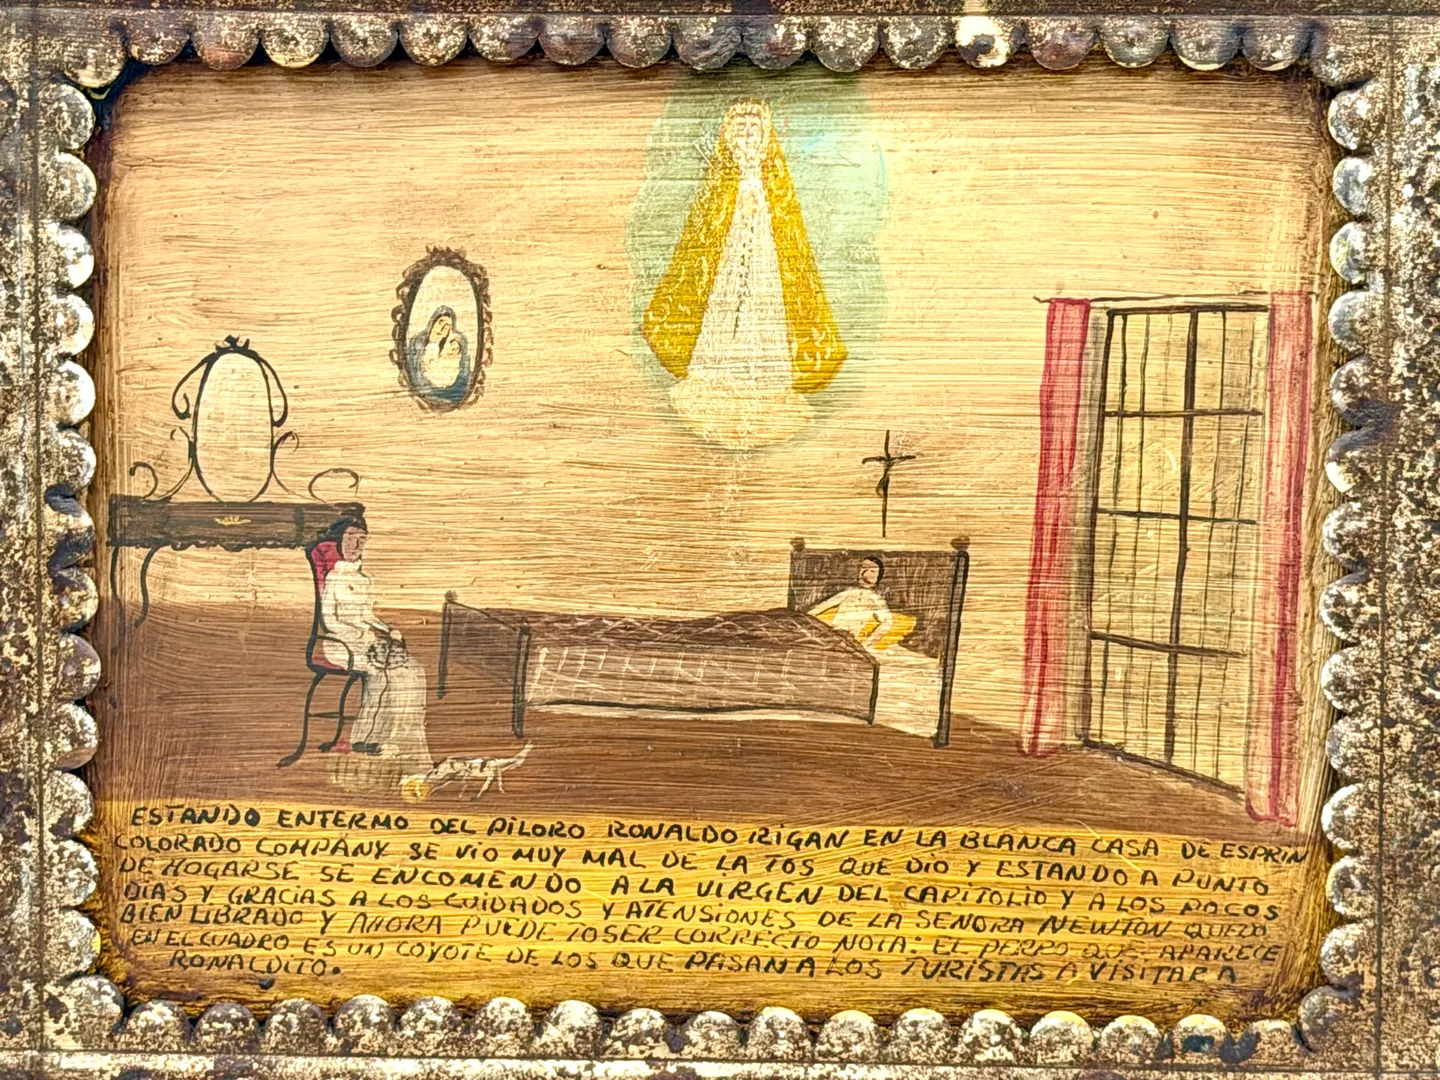 ESTANDO ENTERMO DEL PILORO RONALDO RIGAN EN LA BLANCA CASA DE ESPRIN
COLORADO COMPANY SE VIO MUY MAL DE LA TOS QUE DIO Y ESTANDO A PUNTO
DE HOGARSE SE ENCOMENDO A LA VIRGEN DEL CAPITOLIO Y A LOS POCOS
DIAS Y GRACIAS A LOS CUIDADOS Y ATENSIONES DE LA SEÑORA NEWTON QUEDO
BIEN LIBRADO Y AHORA PUEDE TOSER CORRECTO NOTA: EL PERRO QUE APARECE
EN EL CUADRO ES UN COYOTE DE LOS QUE PASAN A LOS TURISTAS A VISITAR A
RONALDITO.